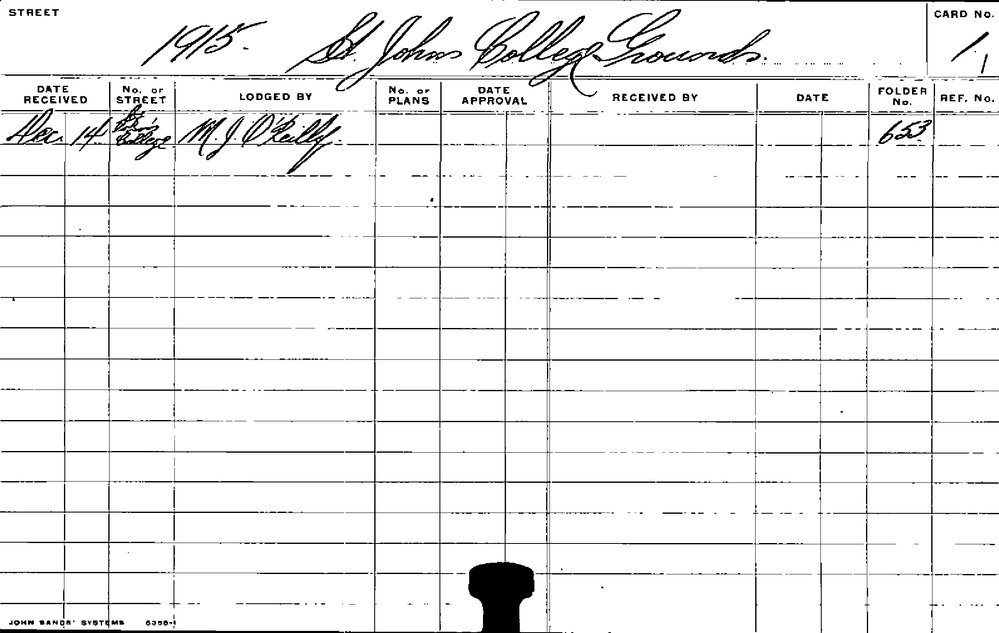 STREET
1915. St. Johns College Grounds.
CARD No.
1
DATE RECEIVED
No. or STREET
LODGED BY
No. or PLANS
DATE APPROVAL
RECEIVED BY
DATE
FOLDER No.
REF. No.
Dec. 14 St John's College M. J. O'Reilly. 653
JOHN SANDS' SYSTEMS